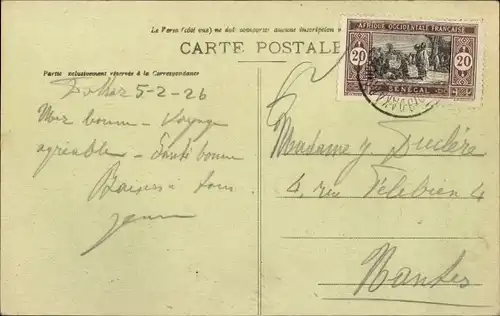 Le Verso (côté vue) ne doit comporter aucune inscription
CARTE POSTALE
AFRIQUE OCCIDENTALE FRANÇAISE
20 20
SÉNÉGAL
Partie exclusivement réservée à la Correspondance
Dakar 5-2-26
bonne - Voyage
agréable - Santé bonne
Baisers à tous
Madame
4, rue 4
Nantes